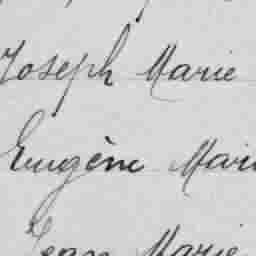 Joseph Marie
Eugène Mari
Jean Marie